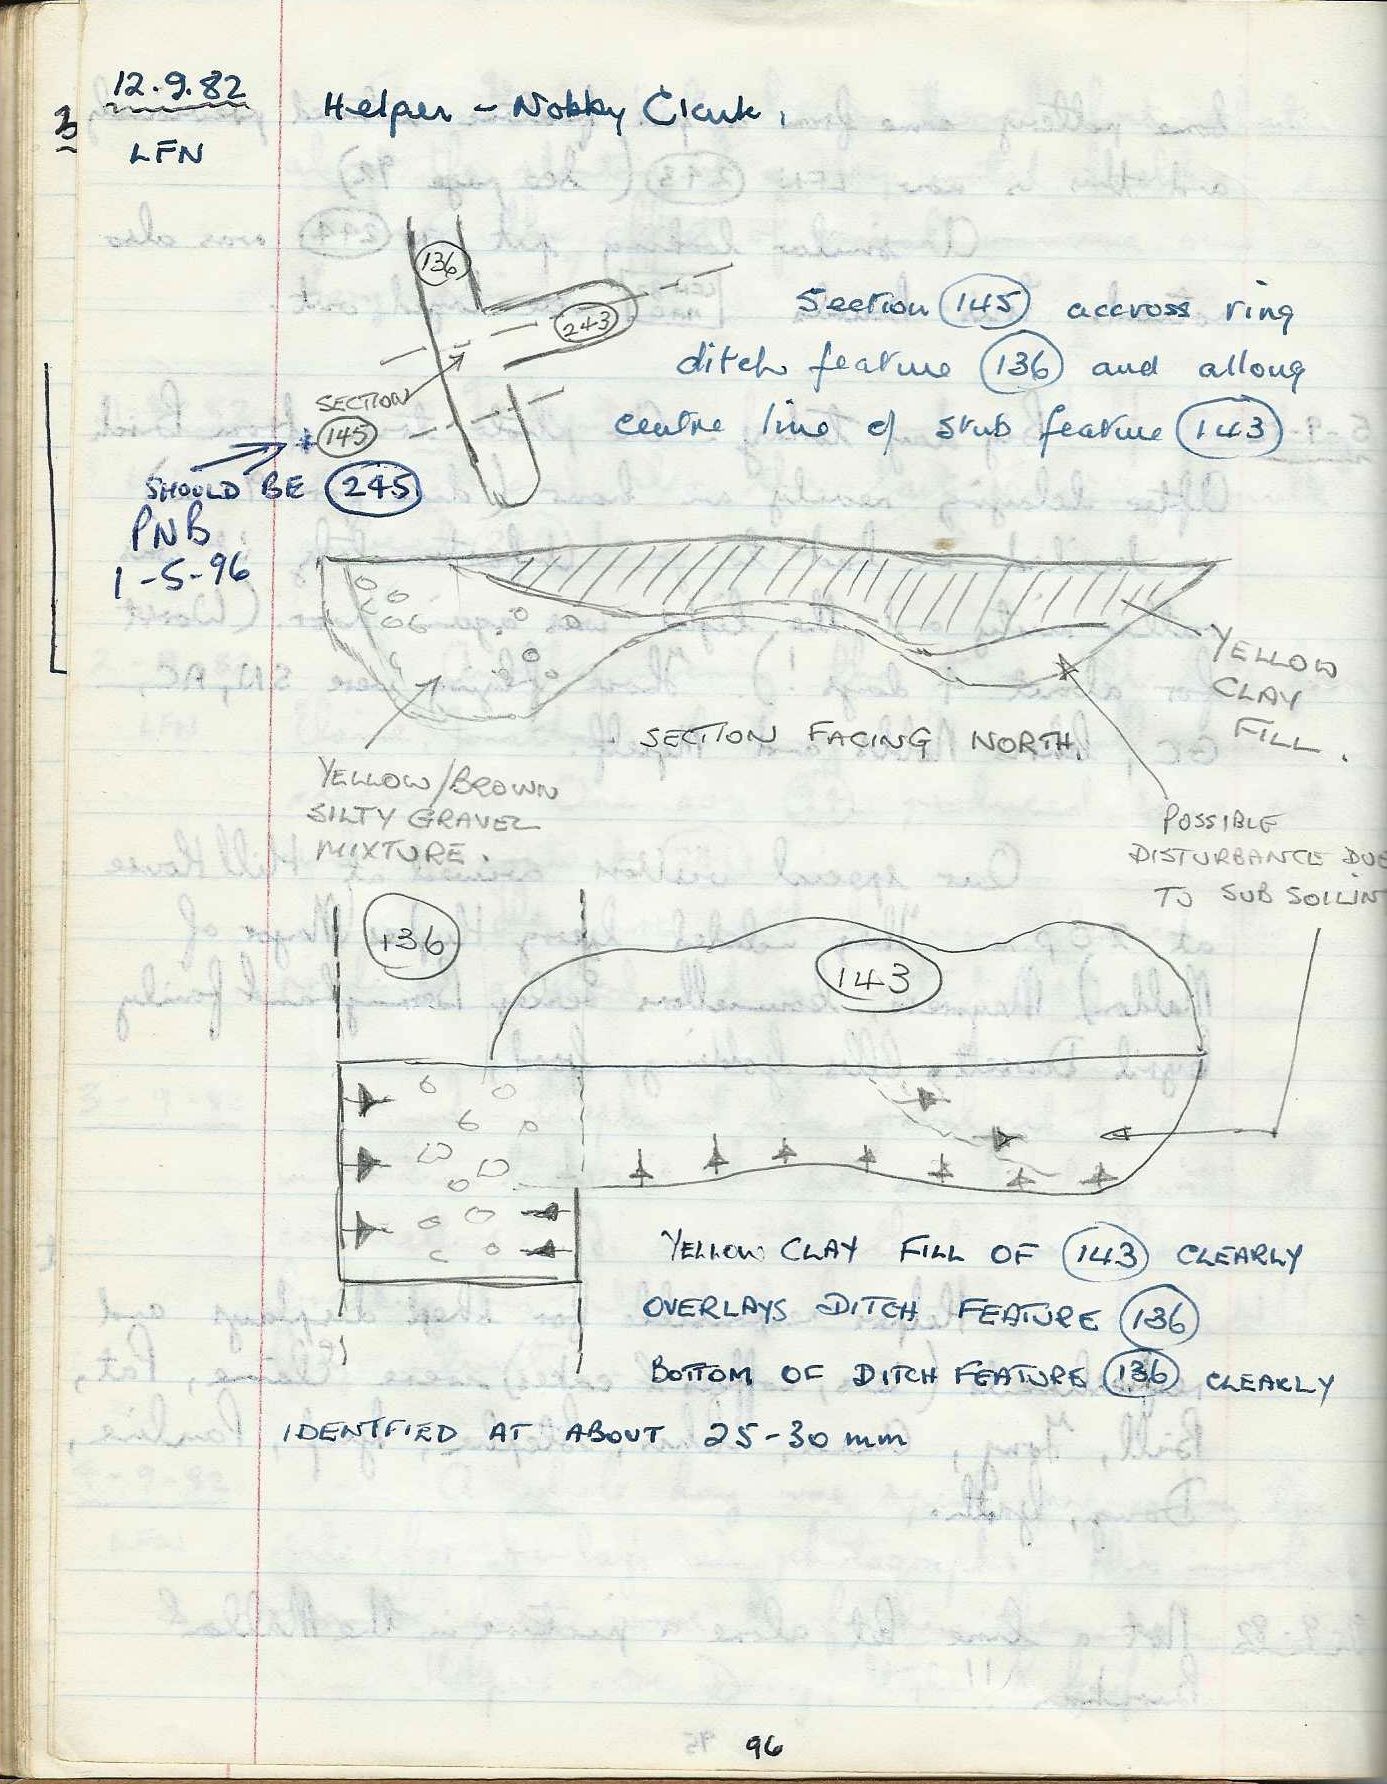 12.9.82
3
LFN
Helper - Nobby Clark.
136
243
SECTION
145
SHOULD BE 245
PNB
1-5-96
Section 145 accross ring
ditch feature 136 and allong
centre line of stub feature 143
YELLOW
CLAY
FILL.
SECTION FACING NORTH.
YELLOW/BROWN
SILTY GRAVEL
MIXTURE.
POSSIBLE
DISTURBANCE DUE
TO SUB SOILIN
136
143
YELLOW CLAY FILL OF 143 CLEARLY
OVERLAYS DITCH FEATURE 136
BOTTOM OF DITCH FEATURE 136 CLEARLY
IDENTFIED AT ABOUT 25-30 mm
96